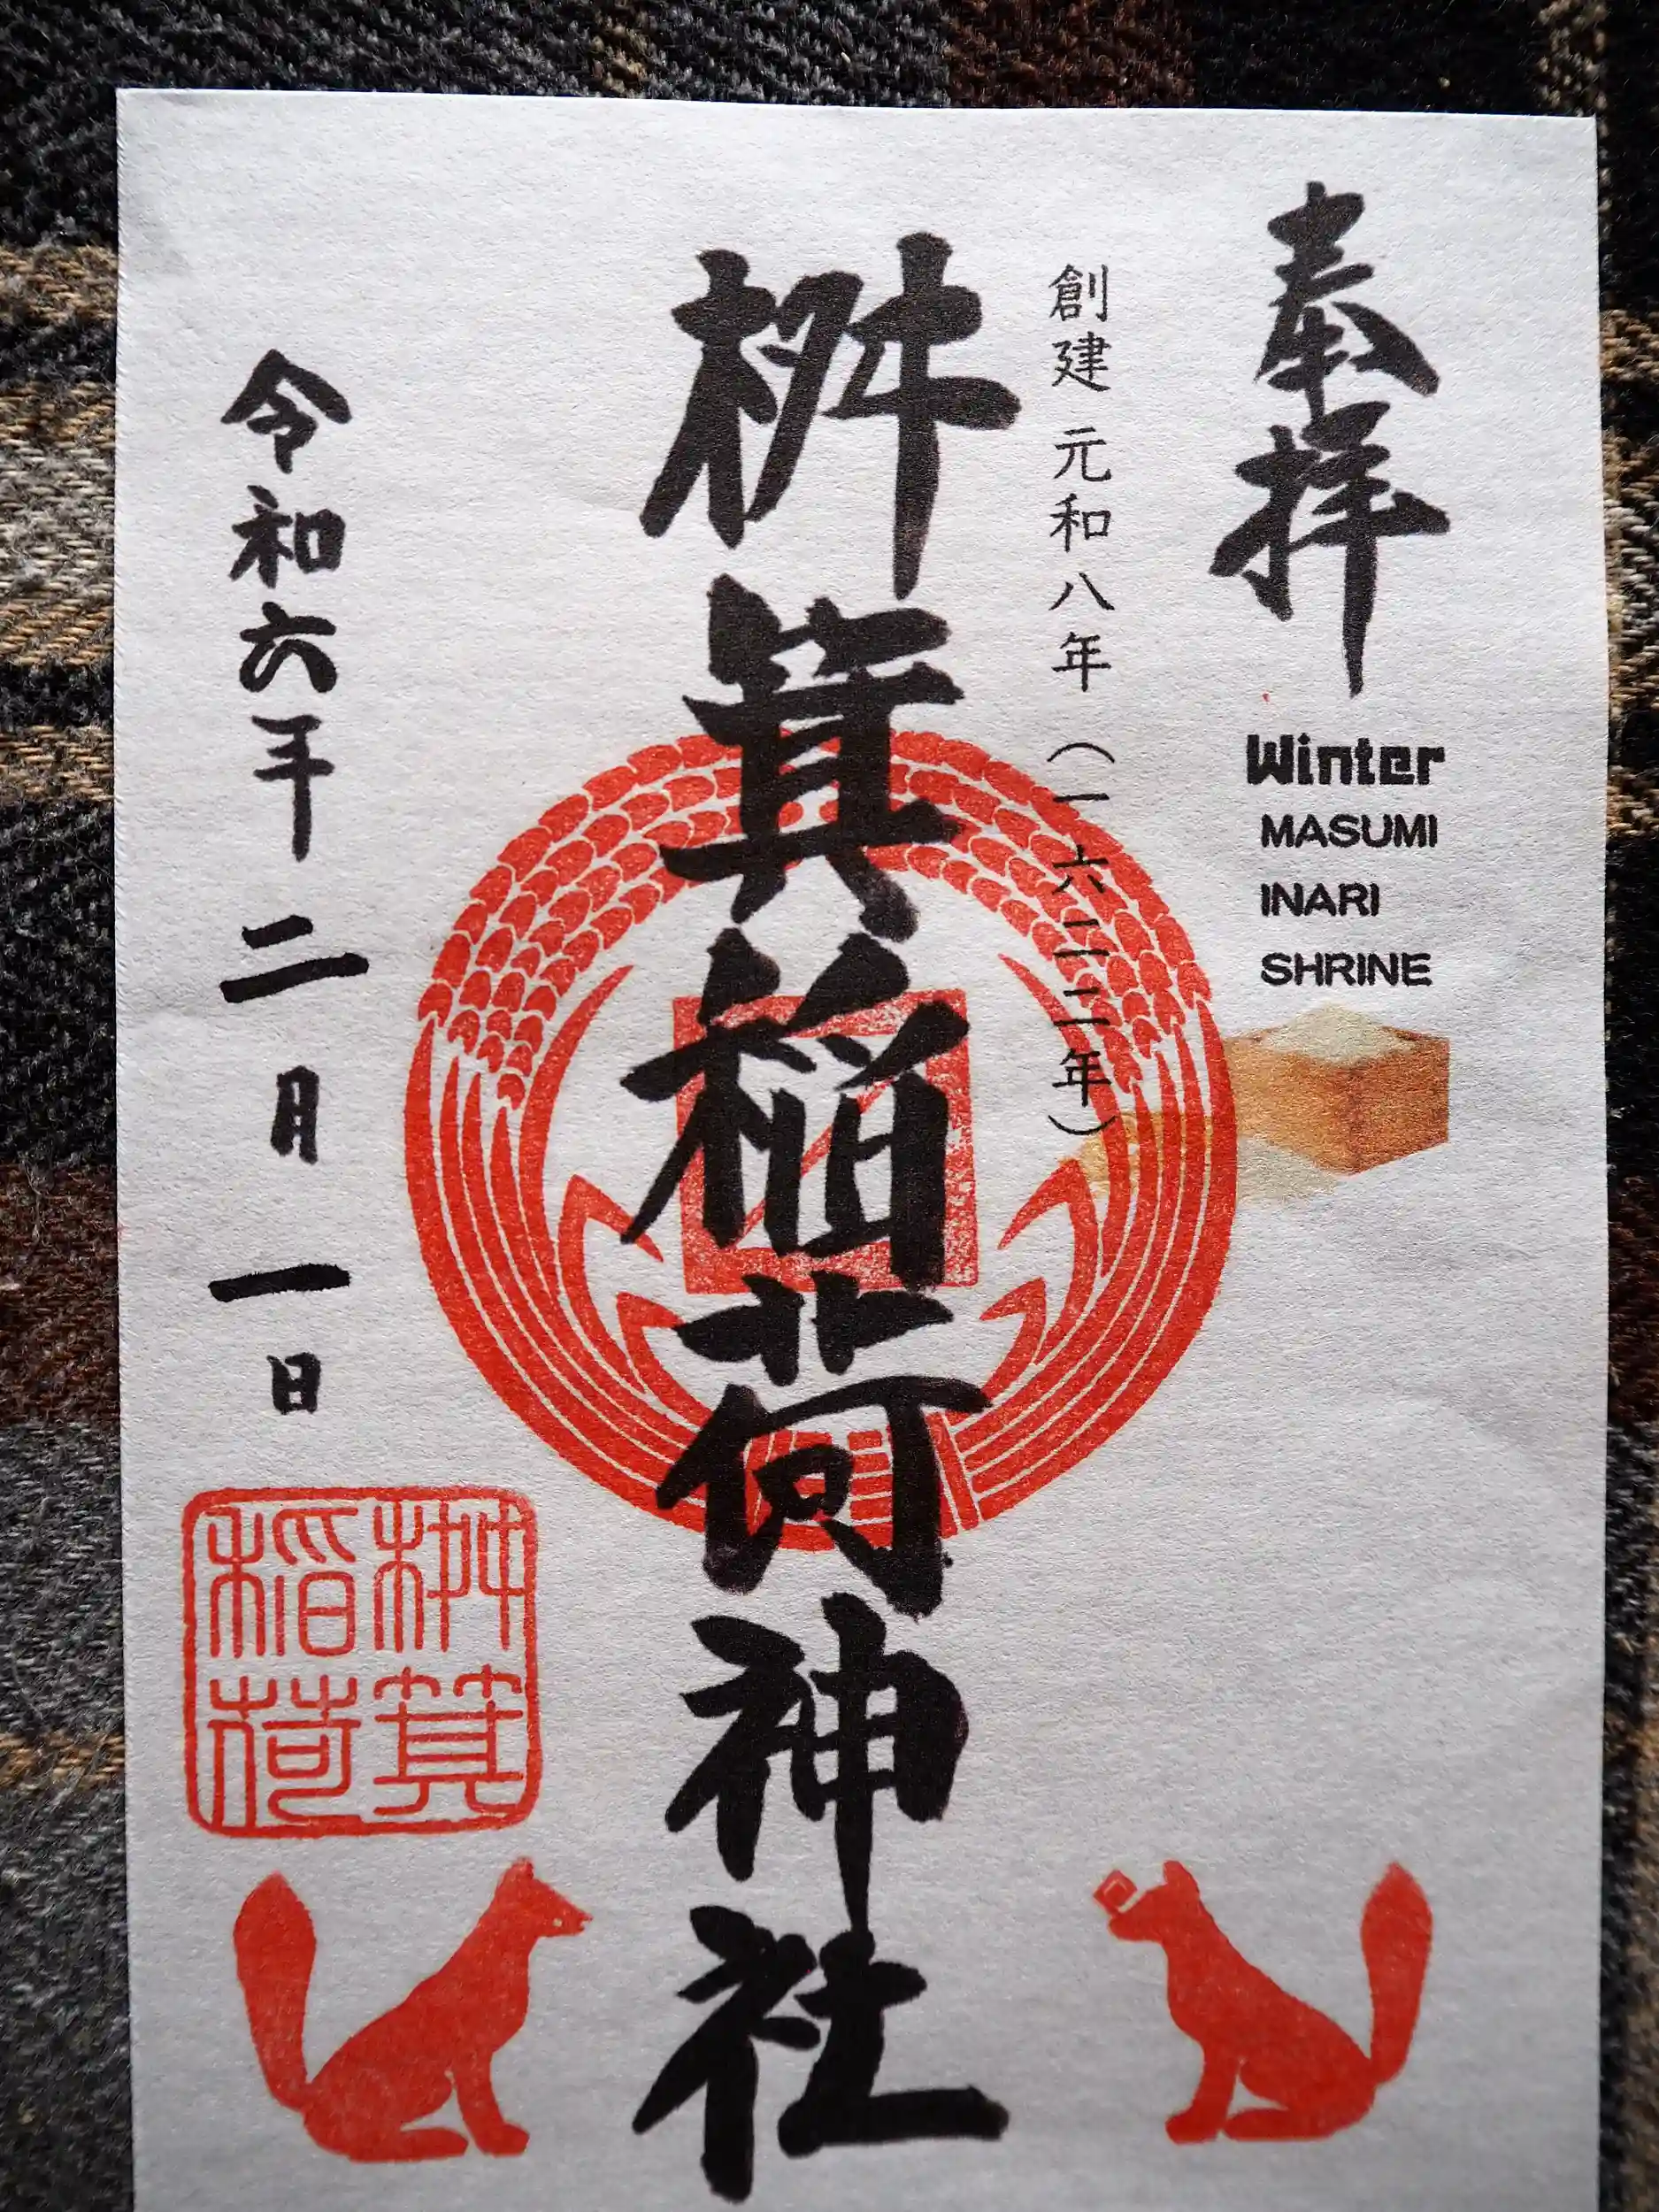 奉拝
Winter
MASUMI
INARI
SHRINE
創建 元和八年(一六二二年)
桝箕稲荷神社
令和六年 二月 一日
桝箕
稲荷